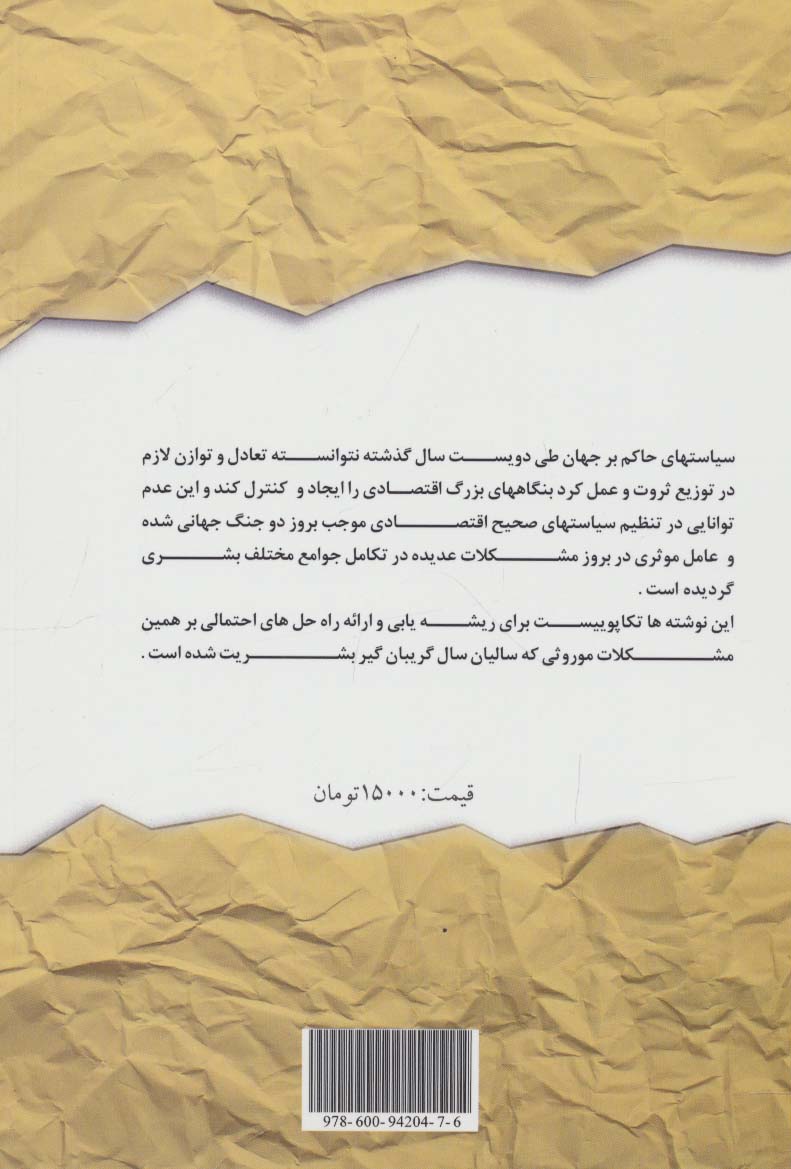 سیاستهای حاکم بر جهان طی دویست سال گذشته نتوانسته تعادل و توازن لازم
در توزیع ثروت و عمل کرد بنگاههای بزرگ اقتصادی را ایجاد و کنترل کند و این عدم
توانایی در تنظیم سیاستهای صحیح اقتصادی موجب بروز دو جنگ جهانی شده
و عامل موثری در بروز مشکلات عدیده در تکامل جوامع مختلف بشری
گردیده است .
این نوشته ها تکاپوییست برای ریشه یابی و ارائه راه حل های احتمالی بر همین
مشکلات موروثی که سالیان سال گریبان گیر بشریت شده است .
قیمت: ۱۵۰۰۰تومان
978-600-94204-7-6